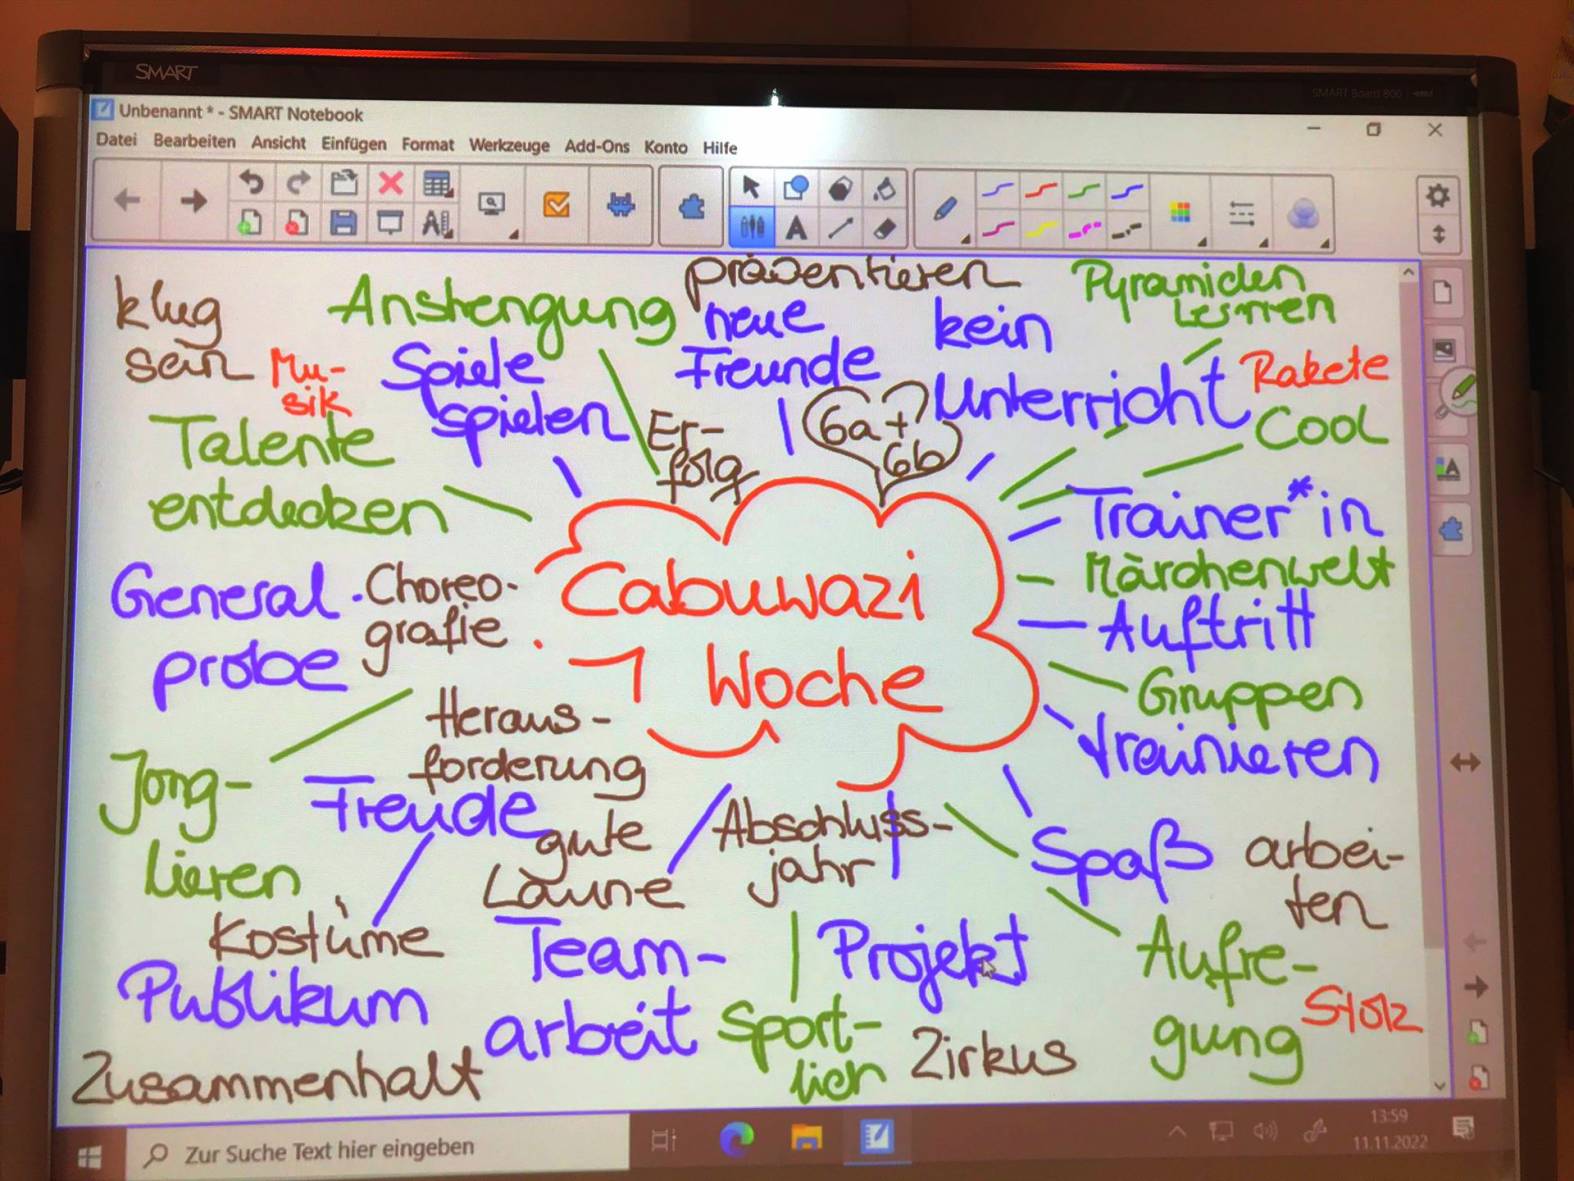 SMART
SMART Board 800
Unbenannt * - SMART Notebook
Datei Bearbeiten Ansicht Einfügen Format Werkzeuge Add-Ons Konto Hilfe
klug
sein
Mu-
sik
Anstrengung
Spiele
spielen
präsentieren
neue
Freunde
Er-
folg
6a +
6b
kein
Unterricht
Pyramiden
Lernen
Rakete
Cool
Talente
entdecken
Trainer*in
Märchenwelt
Auftritt
Gruppen
trainieren
General
probe
Choreo-
grafie
Cabuwazi
Woche
Heraus-
forderung
Jong-
lieren
Freude
gute
Laune
Abschluss-
jahr
Spaß
arbei-
ten
Kostüme
Publikum
Team-
arbeit
Projekt
Aufre-
gung
Stolz
Sport-
lich
Zirkus
Zusammenhalt
Zur Suche Text hier eingeben
13:59
11.11.2022